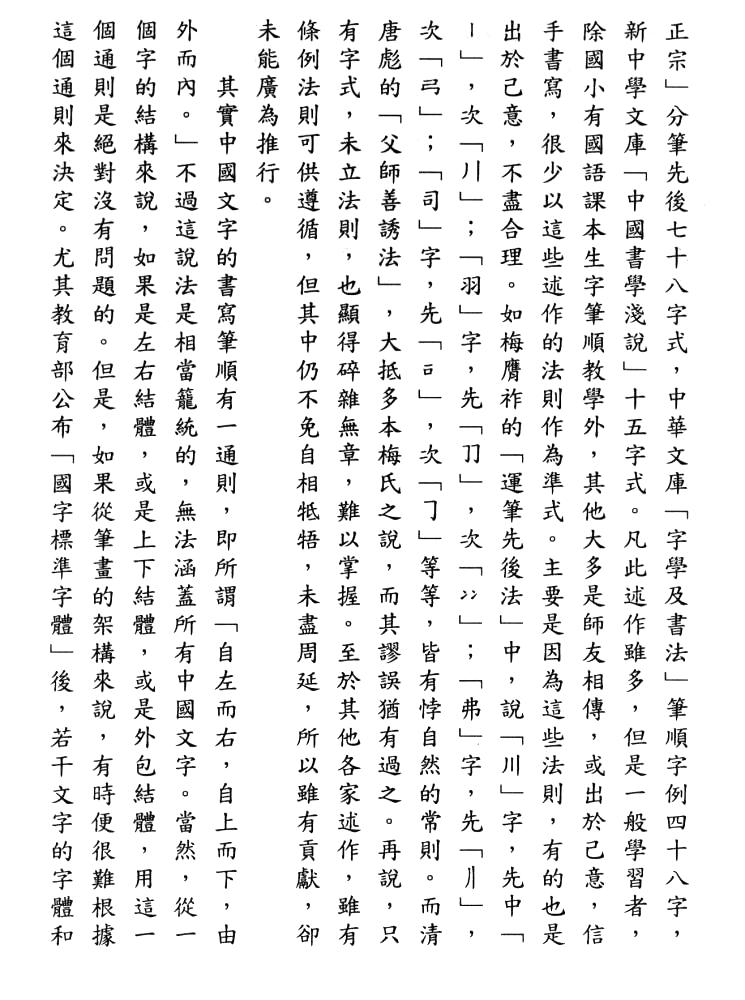 正宗」分筆先後七十八字式，中華文庫「字學及書法」筆順字例四十八字，
新中學文庫「中國書學淺說」十五字式。凡此述作雖多，但是一般學習者，
除國小有國語課本生字筆順教學外，其他大多是師友相傳，或出於己意，信
手書寫，很少以這些述作的法則作為準式。主要是因為這些法則，有的也是
出於己意，不盡合理。如梅膺祚的「運筆先後法」中，說「川」字，先中「
丨」，次「〢」；「羽」字，先「㓅」，次「冫冫」；「弗」字，先「〢」，
次「弓」；「司」字，先「𠮛」，次「㇆」等等，皆有悖自然的常則。而清
唐彪的「父師善誘法」，大抵多本梅氏之說，而其謬誤猶有過之。再說，只
有字式，未立法則，也顯得碎雜無章，難以掌握。至於其他各家述作，雖有
條例法則可供遵循，但其中仍不免自相牴牾，未盡周延，所以雖有貢獻，卻
未能廣為推行。
其實中國文字的書寫筆順有一通則，即所謂「自左而右，自上而下，由
外而內。」不過這說法是相當籠統的，無法涵蓋所有中國文字。當然，從一
個字的結構來說，如果是左右結體，或是上下結體，或是外包結體，用這一
個通則是絕對沒有問題的。但是，如果從筆畫的架構來說，有時便很難根據
這個通則來決定。尤其教育部公布「國字標準字體」後，若干文字的字體和